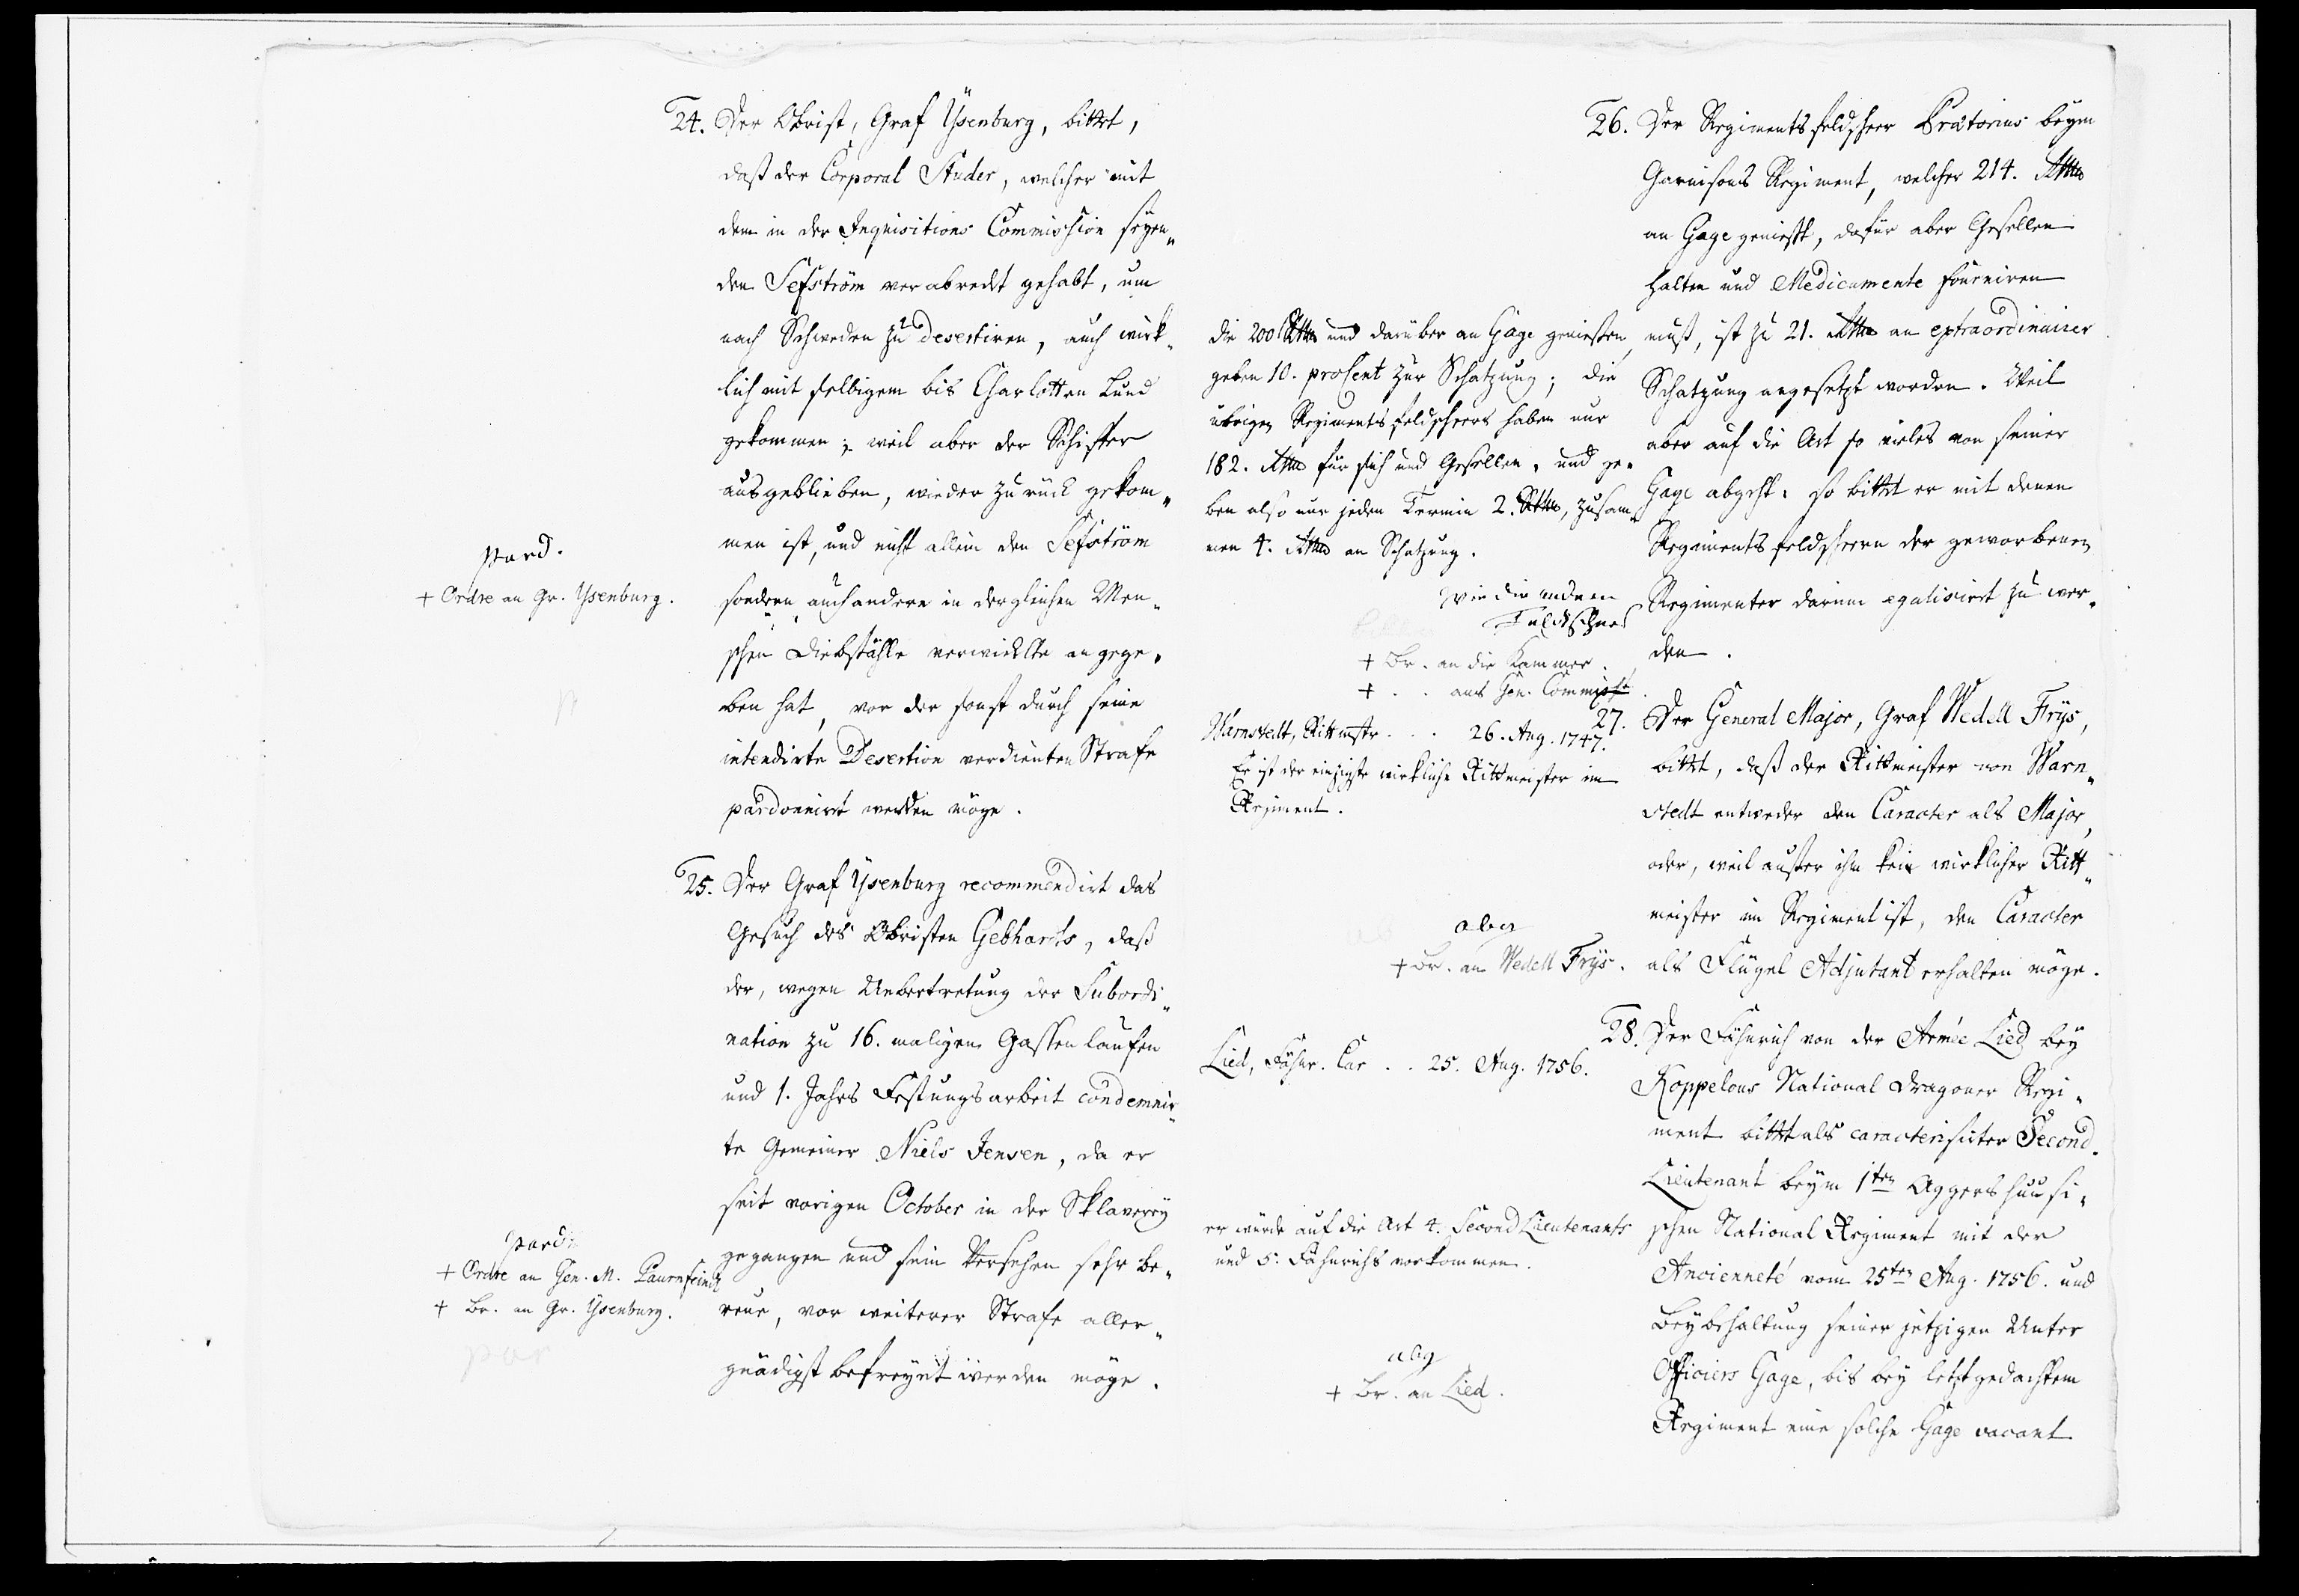 24. Der Obrist, Graf Ysenburg, bittet,
daß der Corporal Studer, welcher mit
dem in der Inquisitions Commission seyen„
den Sefström verabredet gehabt, um
nach Schweden zu desertiren, auch wirk„
lich mit selbigem bis Charlotten Lund
gekommen; weil aber der Schiffer
ausgeblieben, wieder zurück gekom„
men ist, und nicht allein den Sefström
sondern auch andere in dergleichen Men„
schen Diebstähle verwickelte angege„
ben hat, vor der sonst durch seine
intendirte Desertion verdienten Strafe
pardonnirt werden möge.
pard.
+ Ordre an Gr. Ysenburg.
25. Der Graf Ysenburg recommendirt das
Gesuch des Obristen Gebhards, daß
der, wegen Uebertretung der Subordi„
nation zu 16. maligen Gassenlaufen
und 1. Jahrs Festungsarbeit condemnir„
te Gemeiner Niels Jensen, da er
seit vorigen October in der Sklaverey
gegangen und sein Versehen sehr be„
reue, vor weiterer Strafe aller„
gnädigst befreyet werden möge.
pard.
+ Ordre an Gen. M. Paurnfeind
+ Br. an Gr. Ysenburg.
par
26. Der Regimentsfeldscheer Prætorius beym
Garnisons Regiment, welcher 214. Rthlr
an Gage genießt, dafür aber Gesellen
halten und Medicamente fourniren
muß, ist zu 21. Rthlr an extraordinairer
Schatzung angesetzt worden. Weil
aber auf die Art so vieles von seiner
Gage abgeht: so bittet er mit denen
Regimentsfeldscheern der geworbenen
Regimenter darinn egalisirt zu wer„
den.
die 200 Rthlr und darüber an Gage genießen,
geben 10. proCent zur Schatzung; die
übrigen Regimentsfeldscheers haben nur
182. Rthlr für sich und Gesellen, und ge„
ben also nur jeden Termin 2. Rthlr, zusam„
men 4. Rthlr an Schatzung.
Wie die andern
Feldscheer
+ Br. an die Kammer.
+ . . ans Gen. Commiss.
27. Der General Major, Graf Wedell Frys,
bittet, daß der Rittmeister von Warn„
stedt entweder den Caracter als Major,
oder, weil außer ihm kein wirklicher Ritt„
meister im Regiment ist, den Caracter
als Flügel Adjutant erhalten möge.
Warnstedt, Rittmstr. . . 26. Aug. 1747.
Er ist der einzigste wirkliche Rittmeister im
Regiment.
abg
+ Br. an Wedell Frys.
28. Der Fähnrich von der Armée Lied bey
Koppelous National Dragoner Regi„
ment bittet als caracterisirter Second„
Lieutenant beym 1ten Aggershuusi„
schen National Regiment mit der
Ancienneté vom 25ten Aug. 1756. und
Beybehaltung seiner jetzigen Unter
Officiers Gage, bis bey letztgedachtem
Regiment eine solche Gage vacant
Lied, Fähnr. Car . . 25. Aug. 1756.
er würde auf die Art 4. Second Lieutenants
und 5. Fähnrichs vorkommen.
abg
+ Br. an Lied.